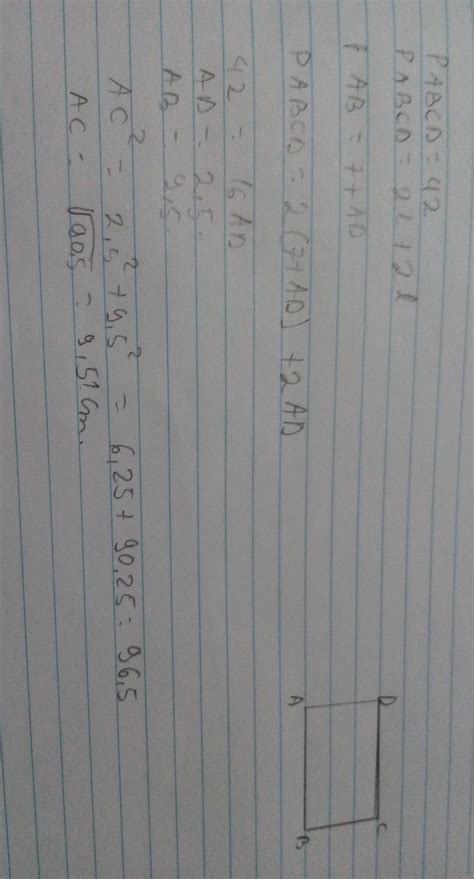 PABCD = 42
PABCD = 2L + 2l
AB = 7+AD
PABCD = 2(7+AD) + 2AD
42 = 16AD
AD = 2,5.
AB = 9,5
AC² = 2,5² + 9,5² = 6,25 + 90,25 = 96,5
AC = = 9,51 cm.
D C
A B